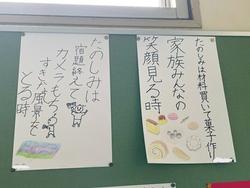 たのしみは材料買いて菓子作り
家族みんなの
笑顔見る時
たのしみは
宿題終えて
カメラもち
すきな風景を
とる時